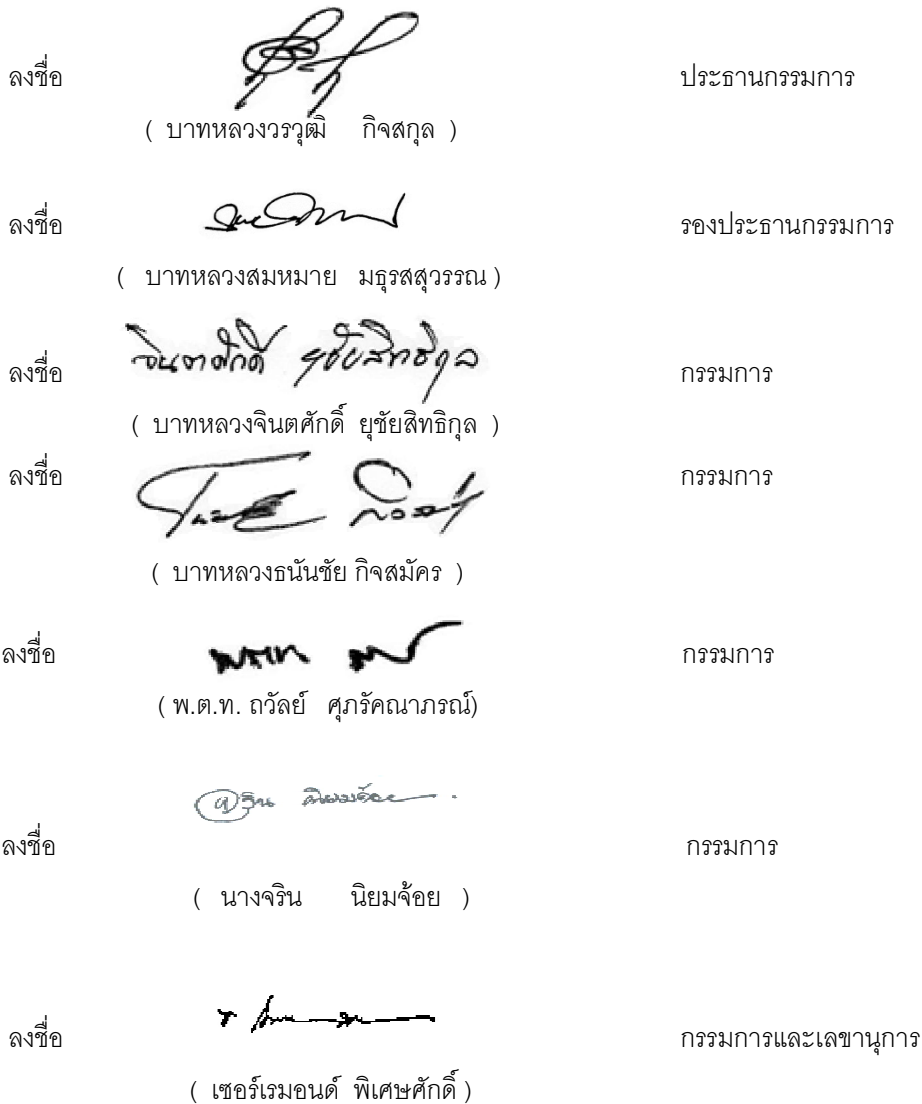 ลงชื่อ ประธานกรรมการ
( บาทหลวงวรวุฒิ กิจสกุล )
ลงชื่อ รองประธานกรรมการ
( บาทหลวงสมหมาย มธุรสสุวรรณ )
ลงชื่อ จินตศักดิ์ ยุชัยสิทธิกุล กรรมการ
( บาทหลวงจินตศักดิ์ ยุชัยสิทธิกุล )
ลงชื่อ กรรมการ
( บาทหลวงธนันชัย กิจสมัคร )
ลงชื่อ กรรมการ
( พ.ต.ท. ถวัลย์ ศุภรัคณาภรณ์)
ลงชื่อ กรรมการ
( นางจริน นิยมจ้อย )
ลงชื่อ กรรมการและเลขานุการ
( เซอร์เรมอนด์ พิเศษศักดิ์ )